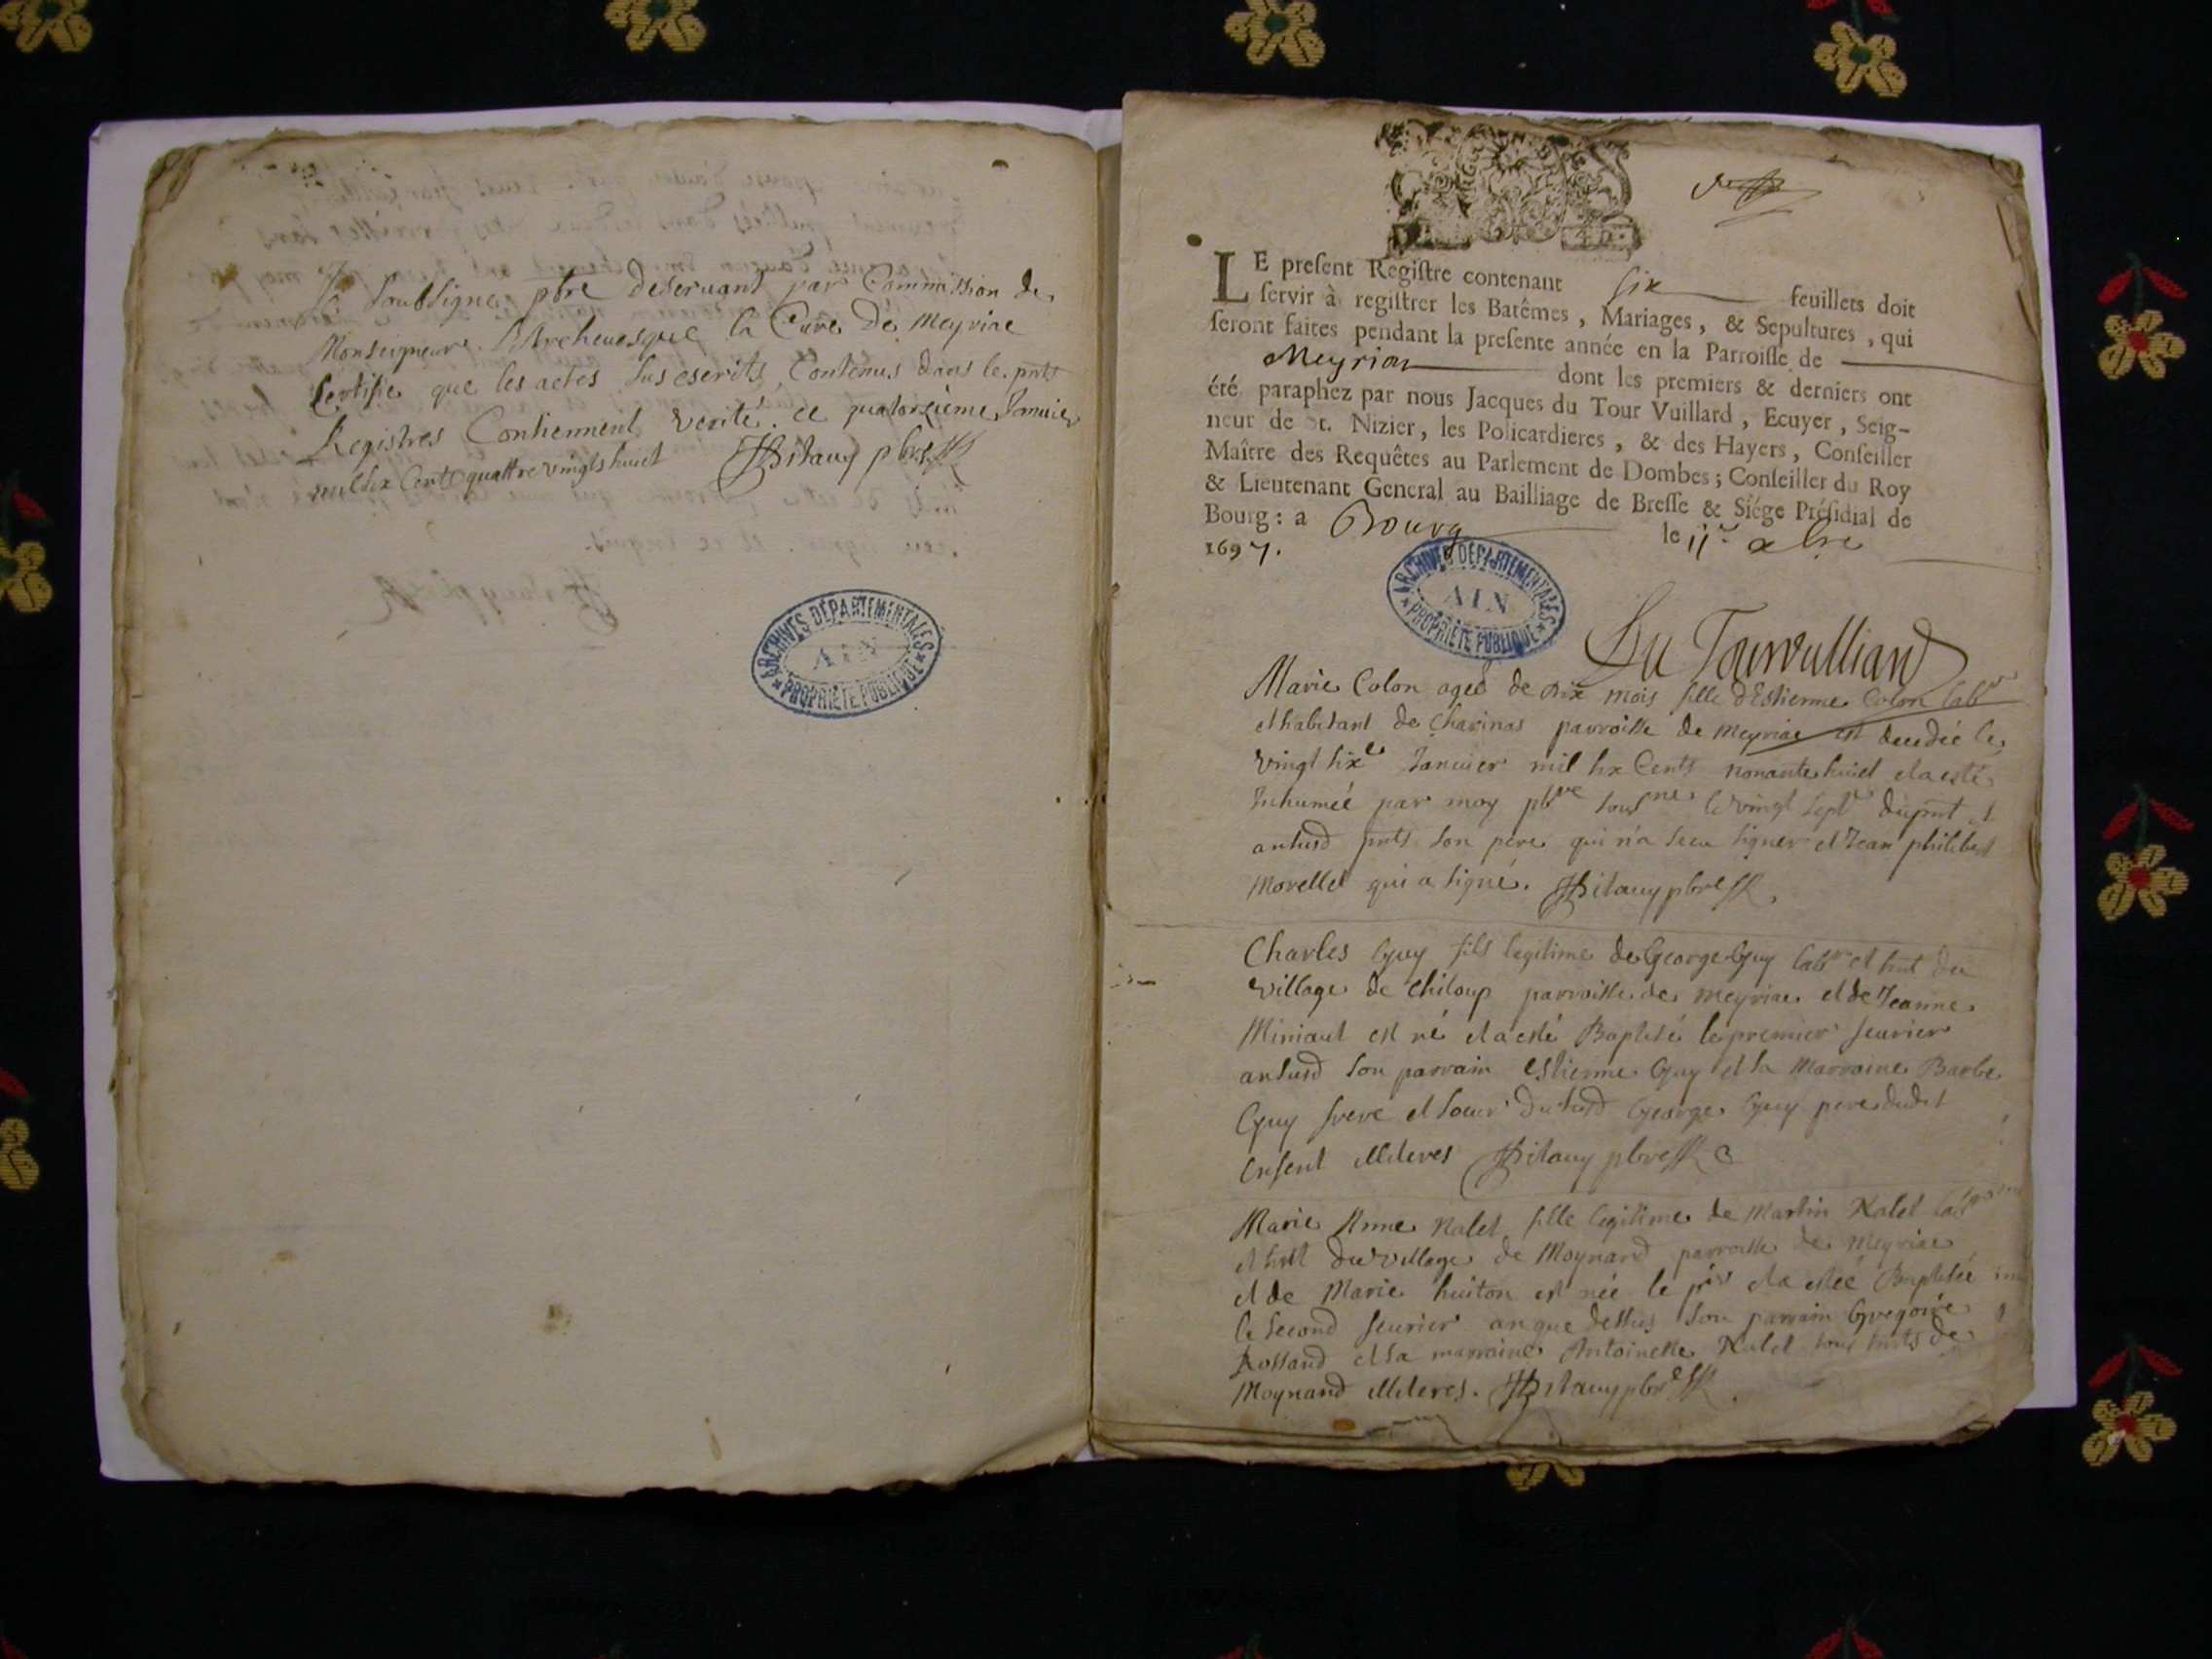 Je soubsigné pbre deservant par Commission de
Monseigneur l'Archeuesque la Cure de Meyriac
Certifie que les actes sus escrits, Contenus dans le pnts
Registres Contiennent verité. ce quatorzieme Januier
mil six Cents quattre vingts huict Bitauy pbre
ARCHIVES DÉPARTEMENTALES
AIN
PROPRIÉTÉ PUBLIQUE
LE preſent Regiſtre contenant six feuillets doit
ſervir à regiſtrer les Batêmes, Mariages, & Sepultures, qui
ſeront faites pendant la preſente année en la Parroiſſe de
Meyriat dont les premiers & derniers ont
été paraphez par nous Jacques du Tour Vuillard, Ecuyer, Seig-
neur de St. Nizier, les Policardieres, & des Hayers, Conſeiller
Maître des Requêtes au Parlement de Dombes; Conſeiller du Roy
& Lieutenant General au Bailliage de Breſſe & Siége Préſidial de
Bourg: a Bourg le 11e xbre
1697.
ARCHIVES DÉPARTEMENTALES
AIN
PROPRIÉTÉ PUBLIQUE
Du Tourvulliard
Marie Colon ageé de dix mois fille d'Estienne Colon labr
et habitant de Charinas parroisse de meyriac est decedée le
vingt sixe Januier mil six Cents nonante huict et a esté
Inhumée par moy pbre sousné le vingt septe du pnt et
an susd pnts son pere qui n'a sceu signer et Jean philibert
Morellet qui a signé. Bitauy pbre
Charles Guy fils legitime de George Guy labr et hnt du
village de Chiloup parroisse de meyriac et de Jeanne
Miniaut est né et a esté Baptisé le premier feurier
an susd son parrain Estienne Guy et sa Marraine Barbe
Guy frere et soeur du susd George Guy pere dudit
Enfent illiteres Bitauy pbre
Marie Anne Nalet fille legitime de Martin Nalet labr
et hnt du village de Moynand parroisse de Meyriac
et de Marie huiton est née le pr et a estée Baptisée
le second feurier an que dessus son parrain Gregoire
Rolland et sa marraine Antoinette Nalet tous hnts de
Moynand illiteres. Bitauy pbre